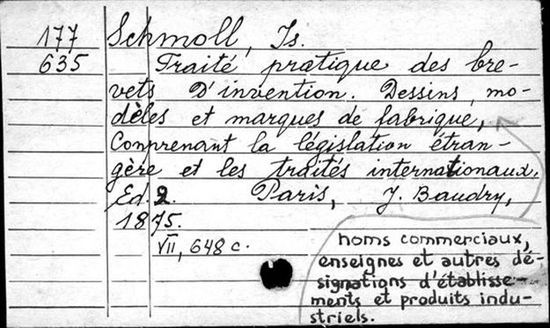 177 Schmoll, Is.
635 Traité pratique des bre-
vets d'invention. Dessins, mo-
dèles et marques de fabrique,
Comprenant la législation étran-
gère et les traités internationaux.
Ed. 2. Paris, J. Baudry,
1875.
VII, 648 c.
noms commerciaux,
enseignes et autres dé-
signations d'établisse-
ments et produits indu-
striels.